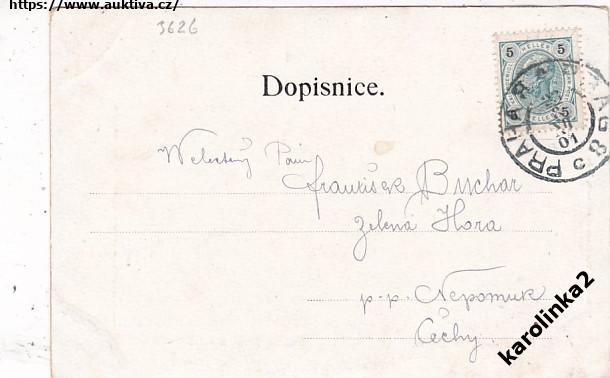 https://www.auktiva.cz/
3626
5 HELLER 5
Dopisnice.
PRAHA PRAG 8
01
Weletěný Pán
František Buchar
Zelená Hora
p. p. Nepomuk
Čechy
karolinka2